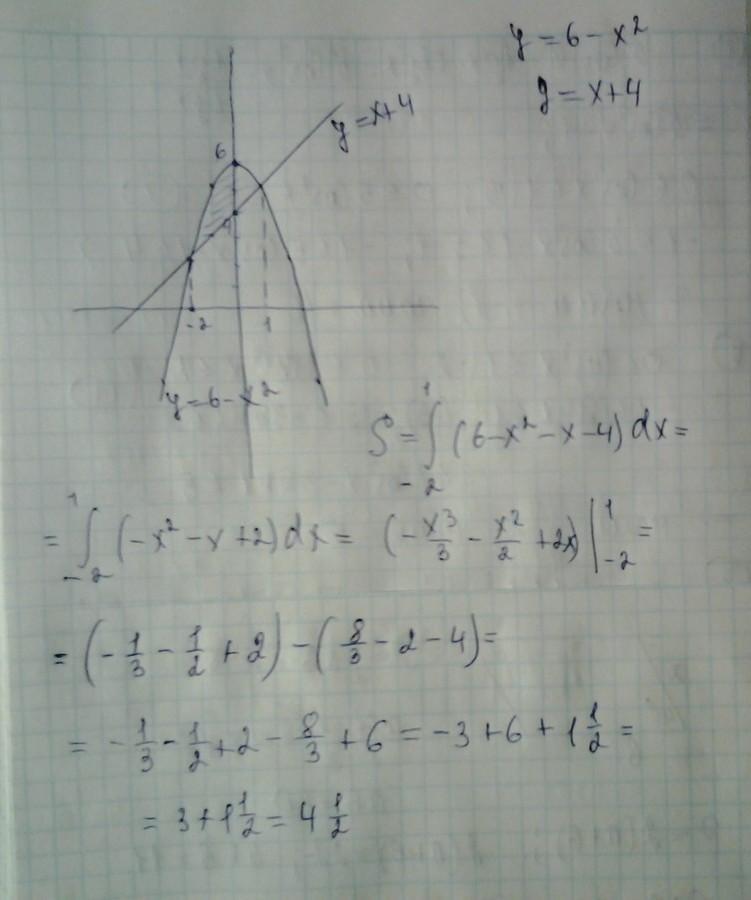 y = 6 - x²
y = x+4
y = x+4
6
4
-2 1
y = 6 - x²
S = ∫₋₂¹ (6 - x² - x - 4) dx =
= ∫₋₂¹ (-x² - x + 2) dx = (-x³/3 - x²/2 + 2x) |₋₂¹ =
= (-1/3 - 1/2 + 2) - (8/3 - 2 - 4) =
= -1/3 - 1/2 + 2 - 8/3 + 6 = -3 + 6 + 1 1/2 =
= 3 + 1 1/2 = 4 1/2